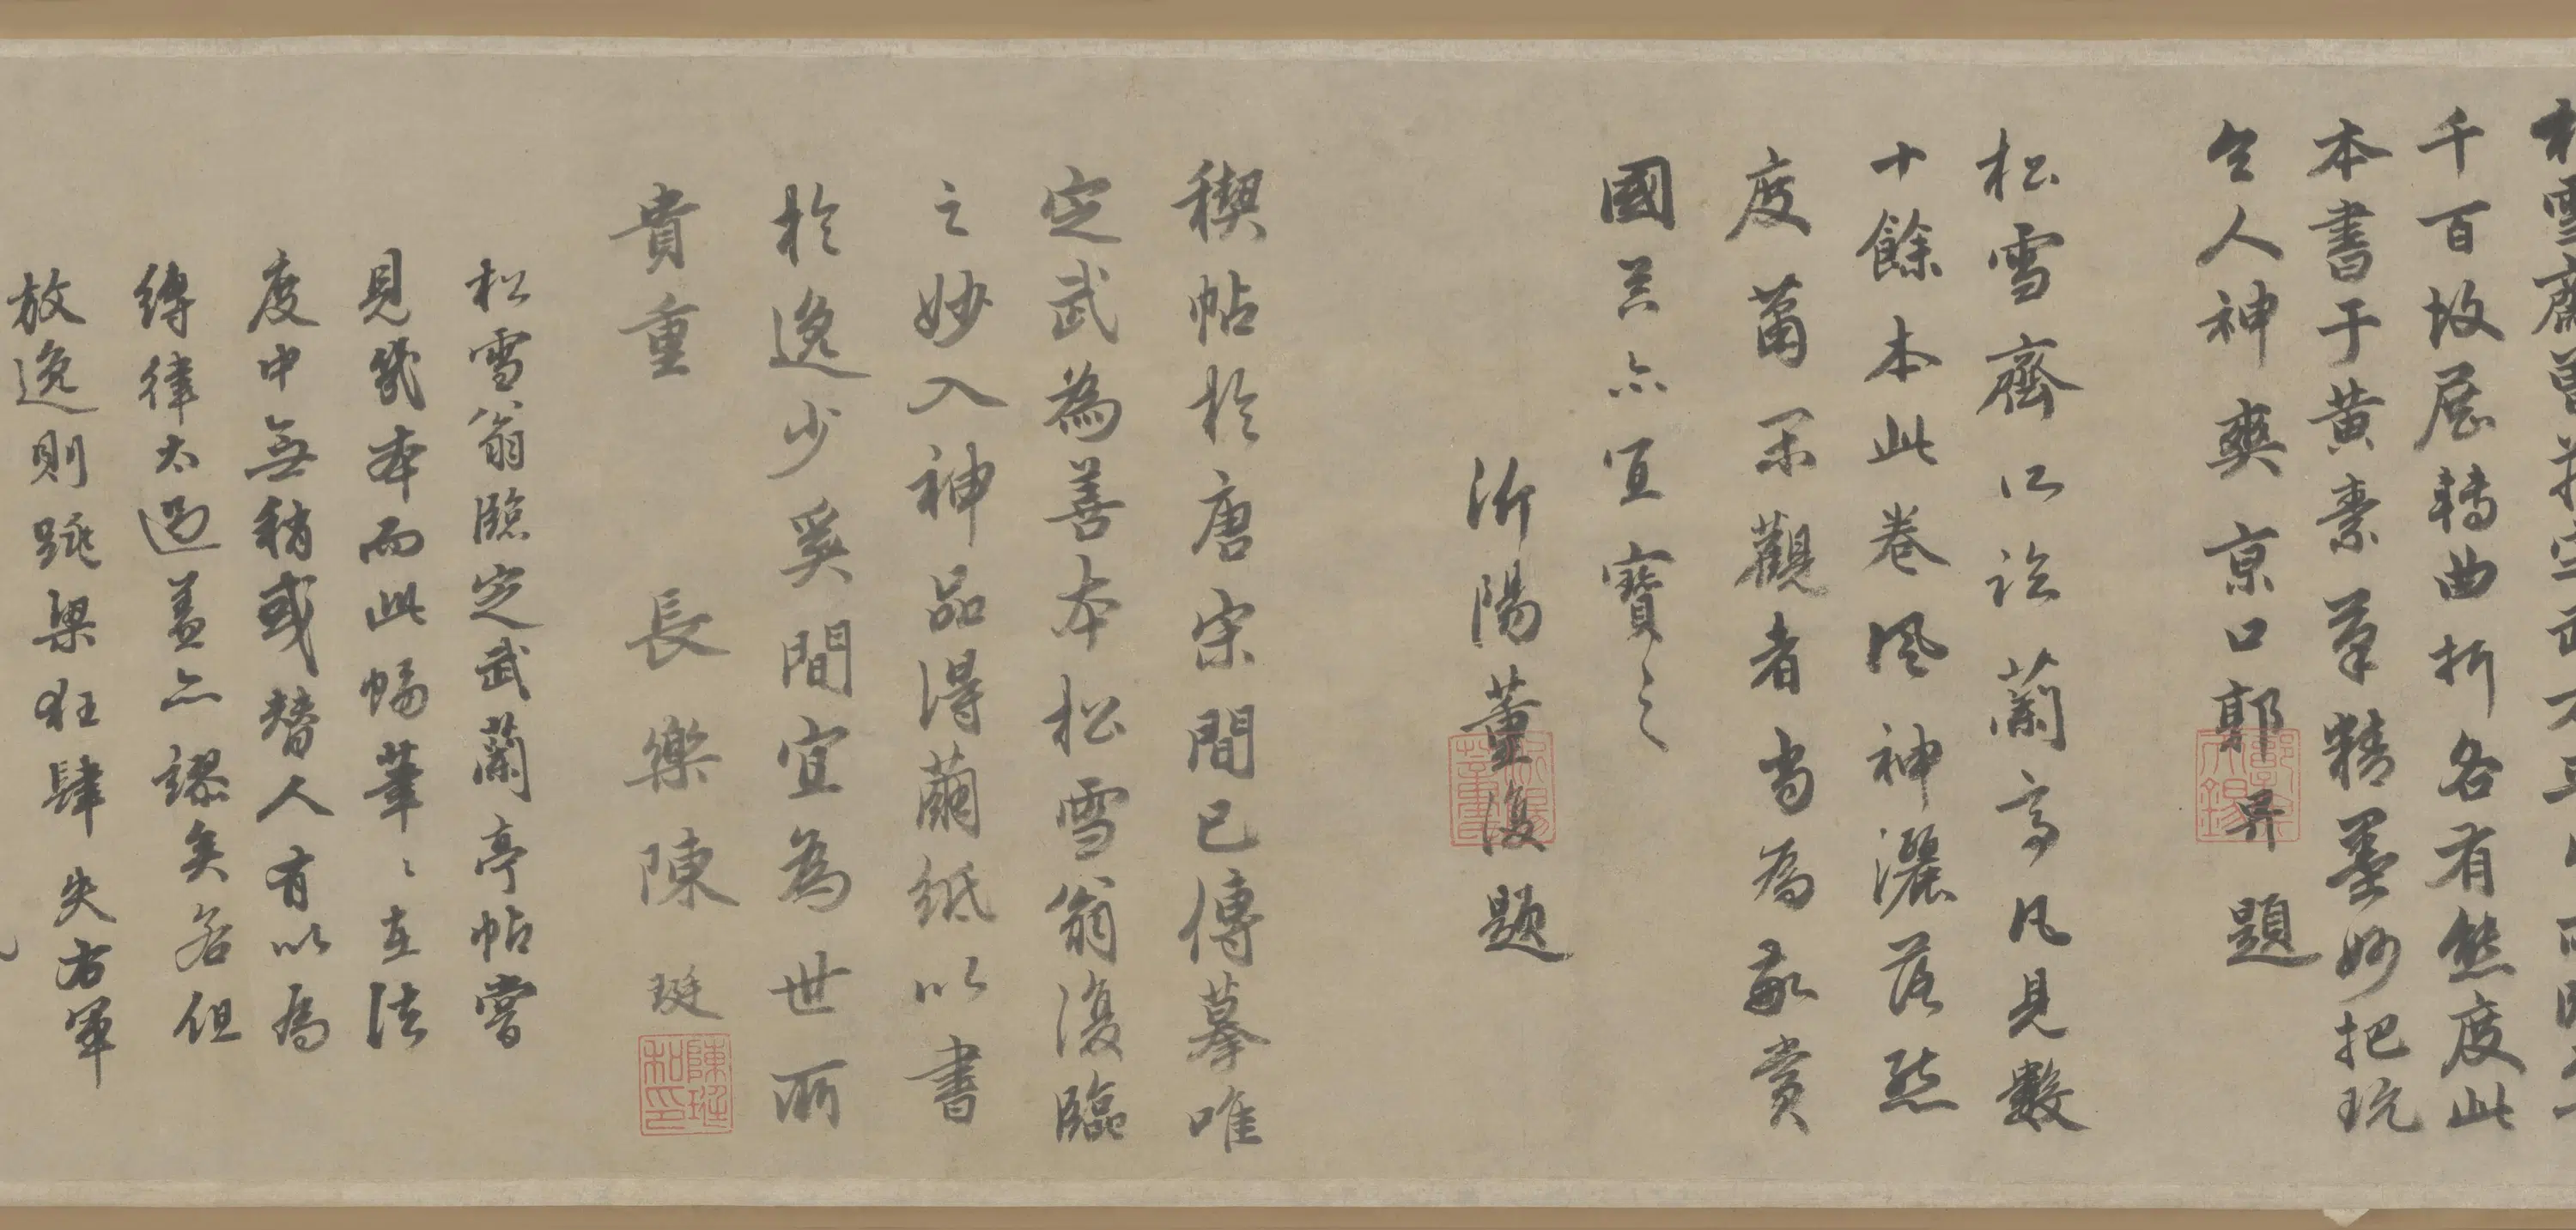 松雪齋曾
千百故展轉曲折各有態度此
本書于黃素筆精墨妙把玩
令人神爽京口郭畀題
松雪齋所臨蘭亭凡見數
十餘本此卷風神灑落態
度蕭閑觀者當為歎賞
國器亦宜寶之
沂陽董復題
禊帖於唐宋間已傳摹唯
定武為善本松雪翁復臨
之妙入神品得繭紙以書
於逸少奚間宜為世所
貴重 長樂陳珽
陳珽和印
松雪翁臨定武蘭亭帖嘗
見幾本而此幅筆筆在法
度中無稍或替人有以為
縛律太過蓋亦謬矣若但
放逸則跳梁狂肆失右軍